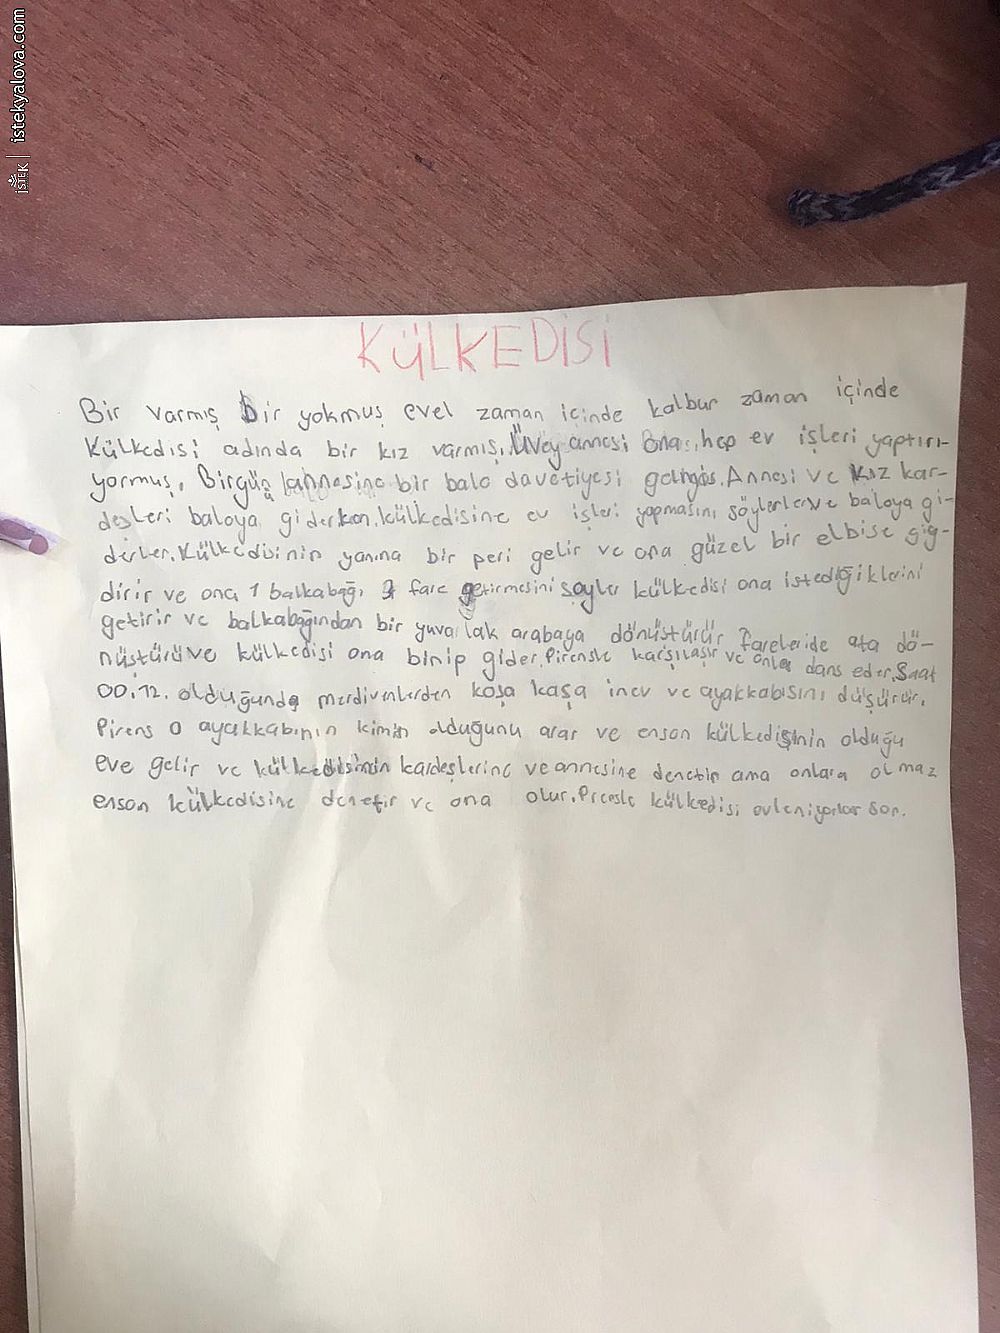 İSTEK | istekyalova.com
KÜLKEDİSİ
Bir varmış bir yokmuş evel zaman içinde kalbur zaman içinde
Külkedisi adında bir kız varmış. Üvey annesi ona hep ev işleri yaptırı-
yormuş. Birgün annesine bir balo davetiyesi gelmiş. Annesi ve kız kar-
deşleri baloya giderken külkedisine ev işleri yapmasını söylerler ve baloya gi-
derler. Külkedisinin yanına bir peri gelir ve ona güzel bir elbise giy-
dirir ve ona 1 balkabağı fare getirmesini söyler külkedisi ona istediğiklerini
getirir ve balkabağından bir yuvarlak arabaya dönüştürür fareleride ata dö-
nüştürüve külkedisi ona binip gider. Pirensle karşılaşır ve onla dans eder. Saat
00.12. olduğunda merdivenlerden koşa koşa iner ve ayakkabısını düşürür.
Pirens o ayakkabının kimin olduğunu arar ve enson külkedisinin olduğu
eve gelir ve külkedisinin kardeşlerine ve annesine denetir ama onlara olmaz
enson külkedisine denetir ve ona olur. külkedisi evleniyorlar son.